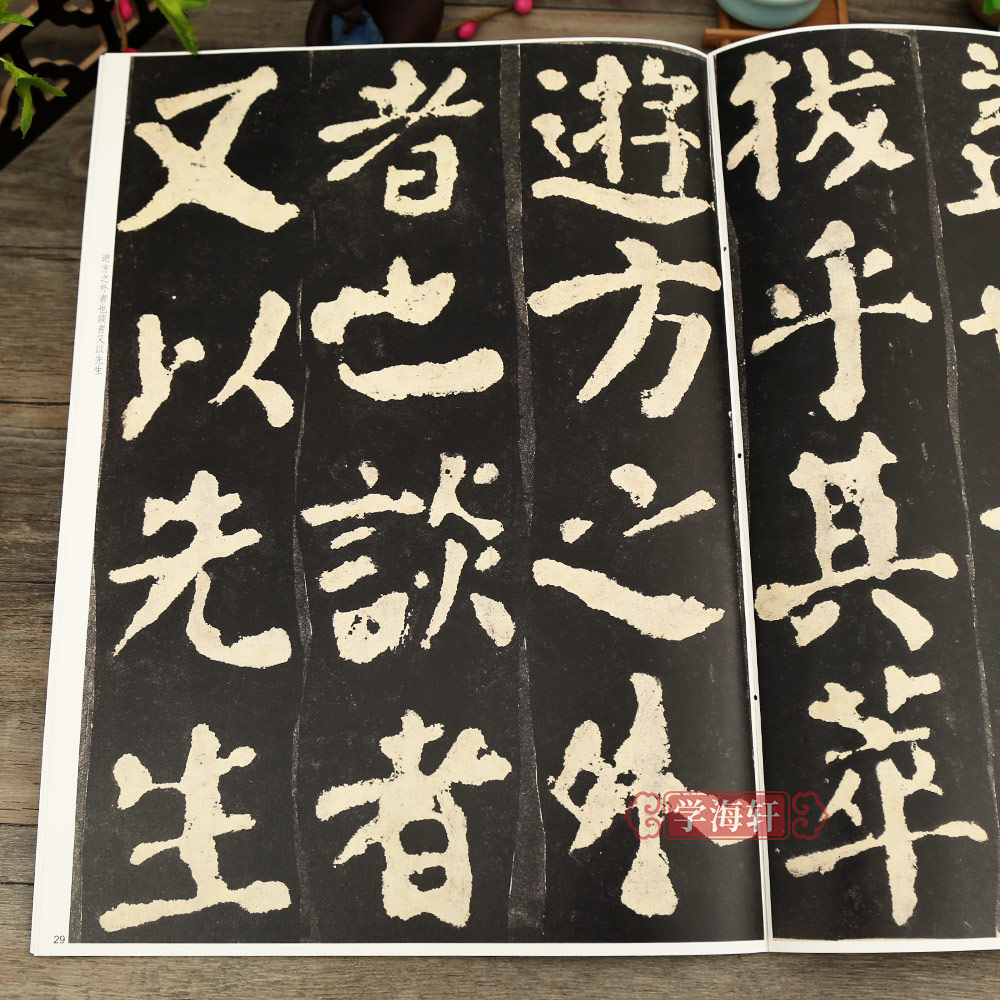 拔乎其萃
遊方之外
者也談者
又以先生
遊方之外者也談者又以先生
29
学海轩